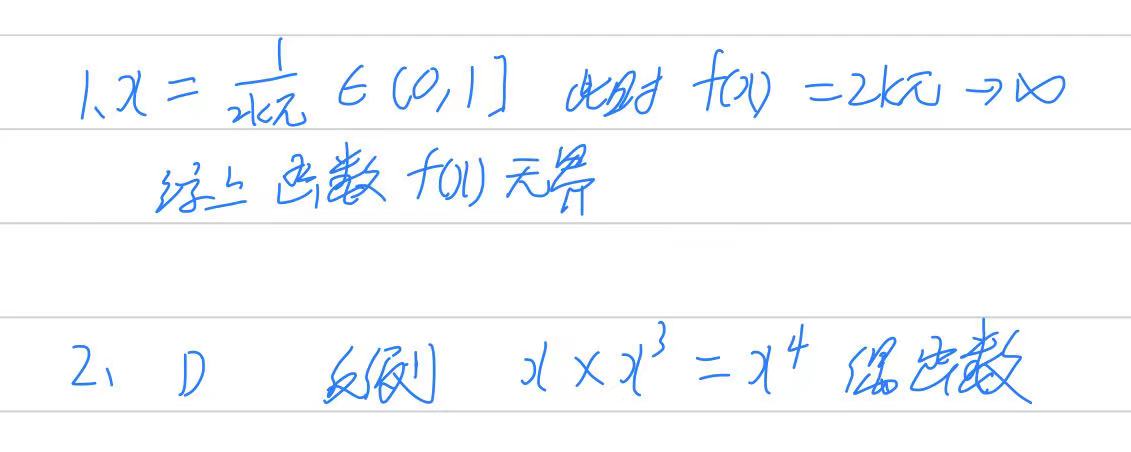 1、x = 1/2kπ ∈ (0,1] 此时 f(x) = 2kπ → ∞
综上 函数 f(x) 无界
2、 D 反例 x × x³ = x⁴ 偶函数